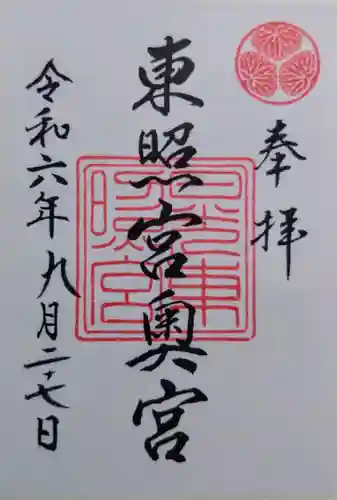 奉拝
東照宮奥宮
令和六年九月二十七日